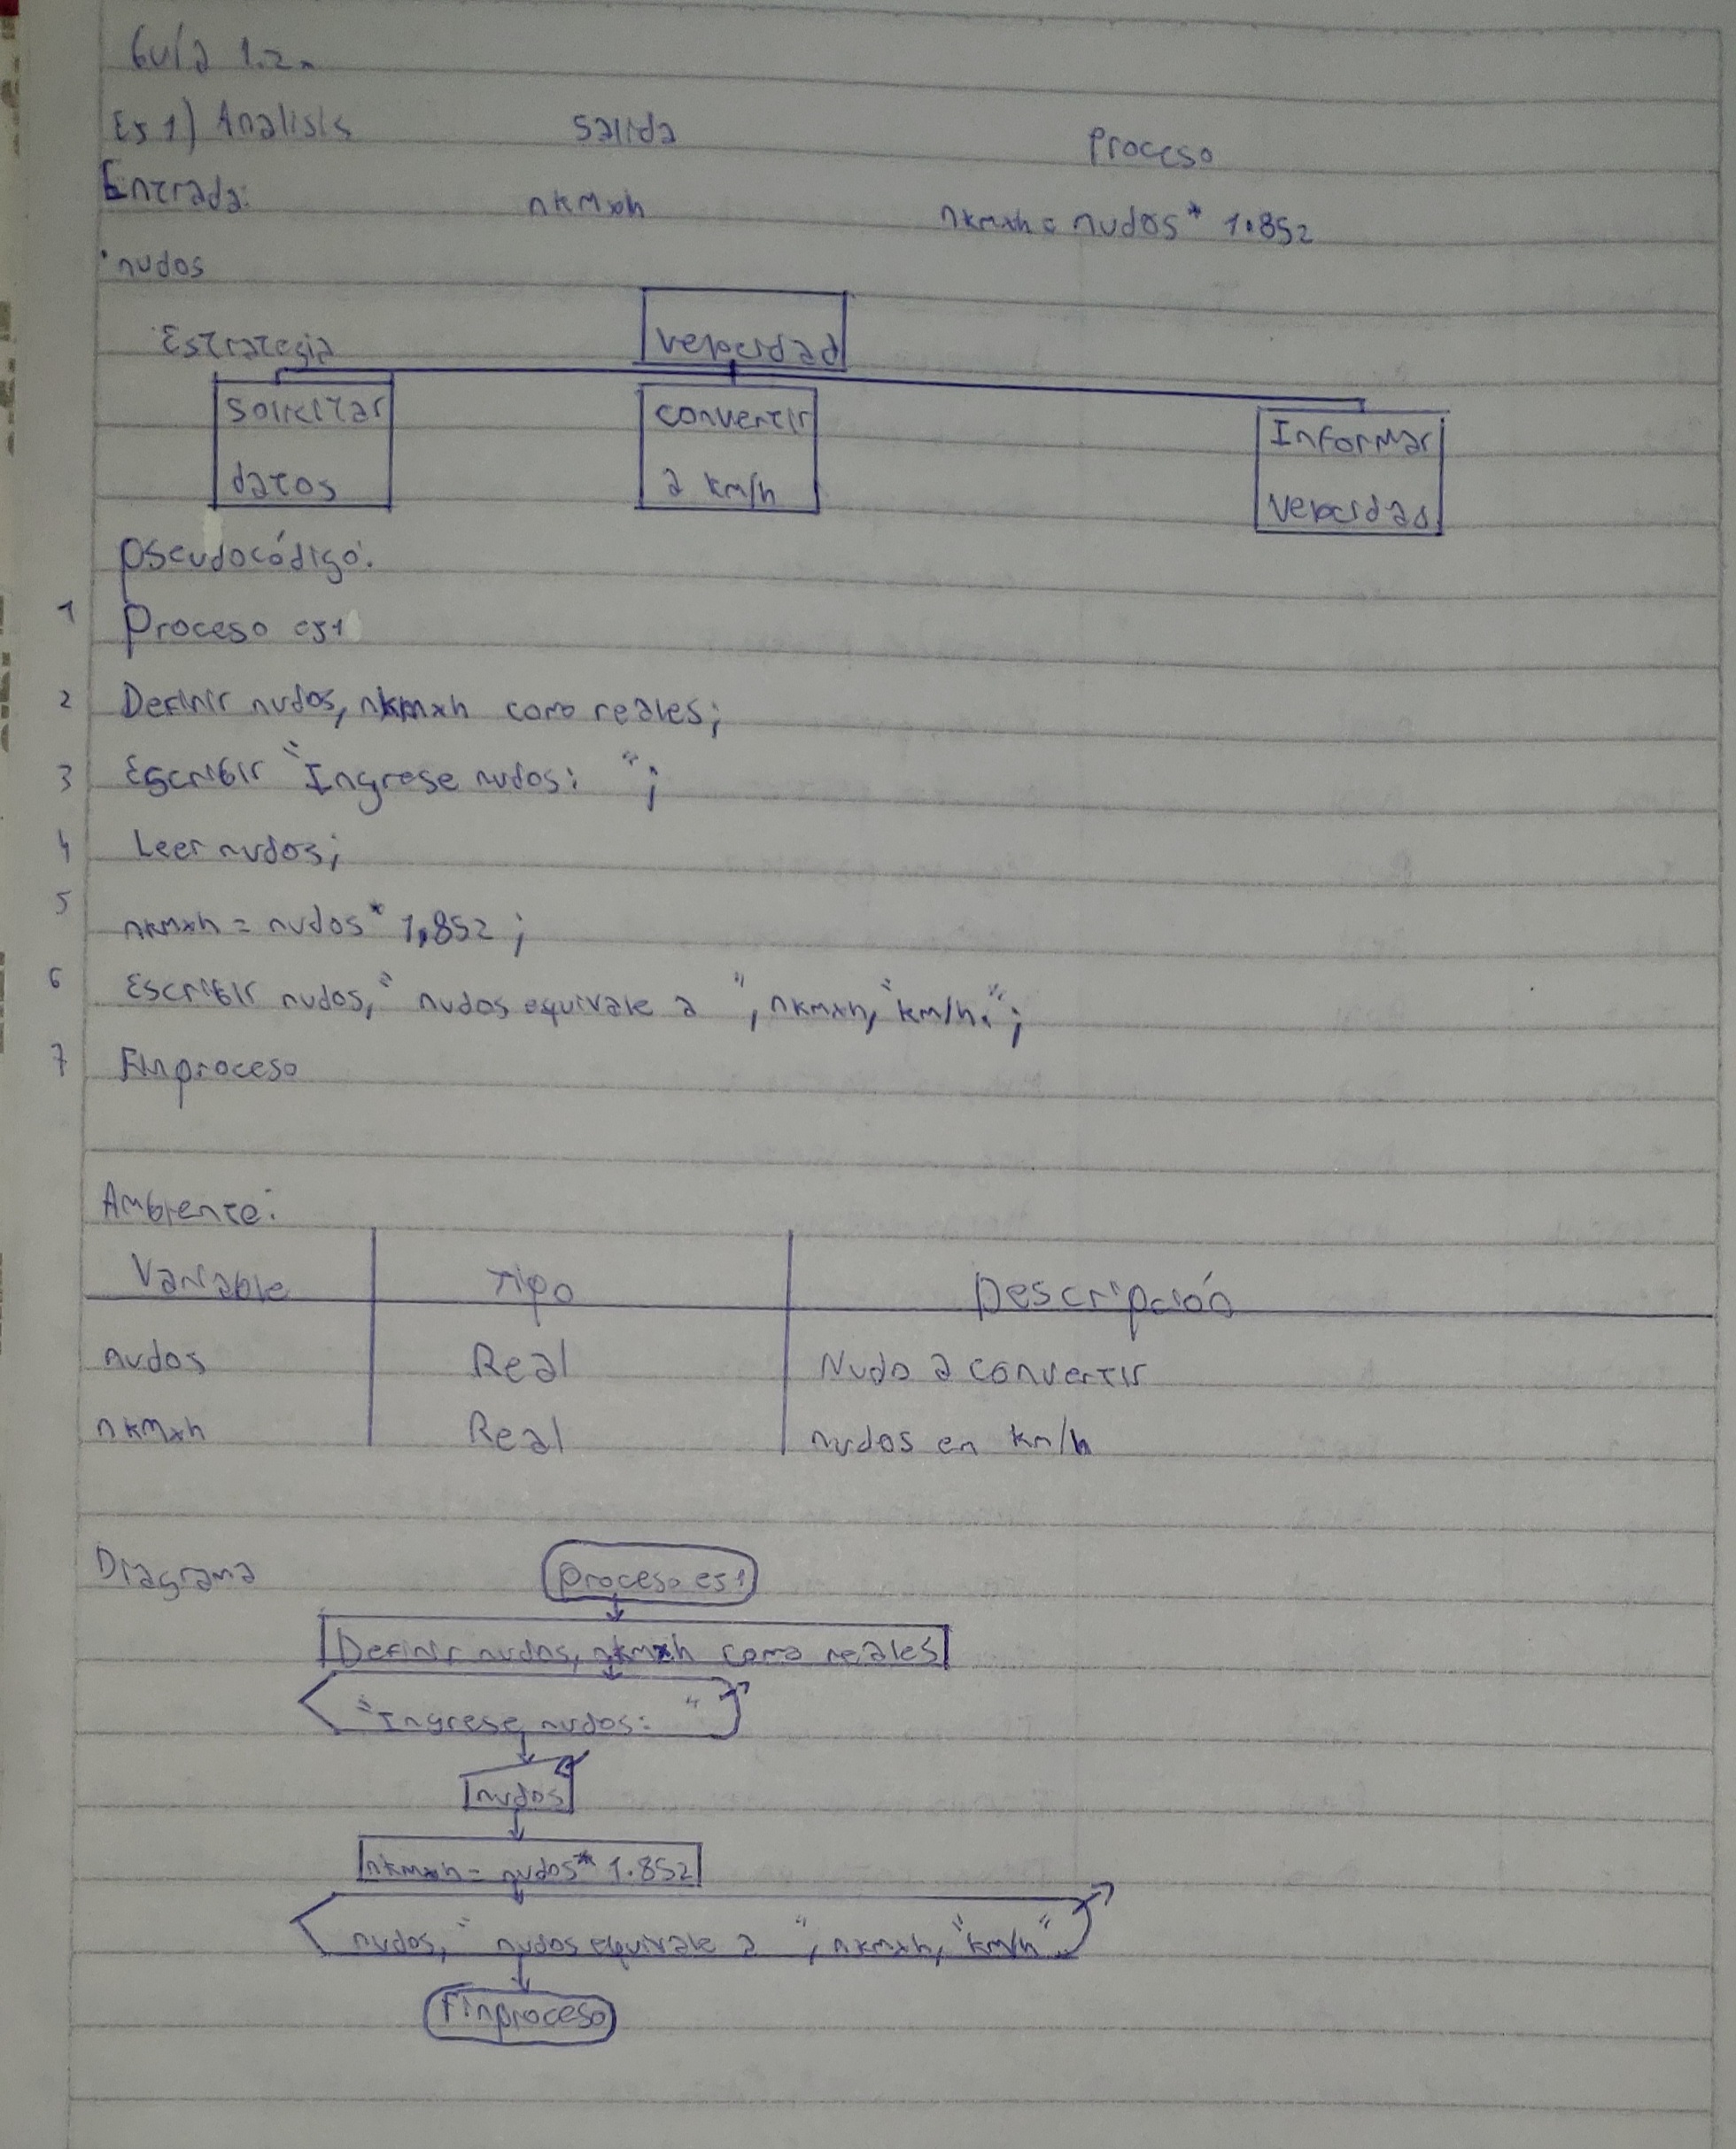 Guía 1.2.
Ej 1) Analisis Salida Proceso
Entrada: nkmxh nkmxh = nudos * 1.852
• nudos
Estrategia Velocidad
Solicitar convertir Informar
datos a km/h velocidad
Pseudocódigo:
1 Proceso ej1
2 Definir nudos, nkmxh como reales;
3 Escribir "Ingrese nudos: ";
4 Leer nudos;
5 nkmxh = nudos * 1,852;
6 Escribir nudos, " nudos equivale a ", nkmxh, "km/h.";
7 Finproceso
Ambiente:
Variable Tipo Descripción
nudos Real Nudo a convertir
nkmxh Real nudos en km/h
Diagrama Proceso ej1
Definir nudos, nkmxh como reales
"Ingrese nudos: "
nudos
nkmxh = nudos * 1.852
nudos, " nudos equivale a ", nkmxh, "km/h".
Finproceso